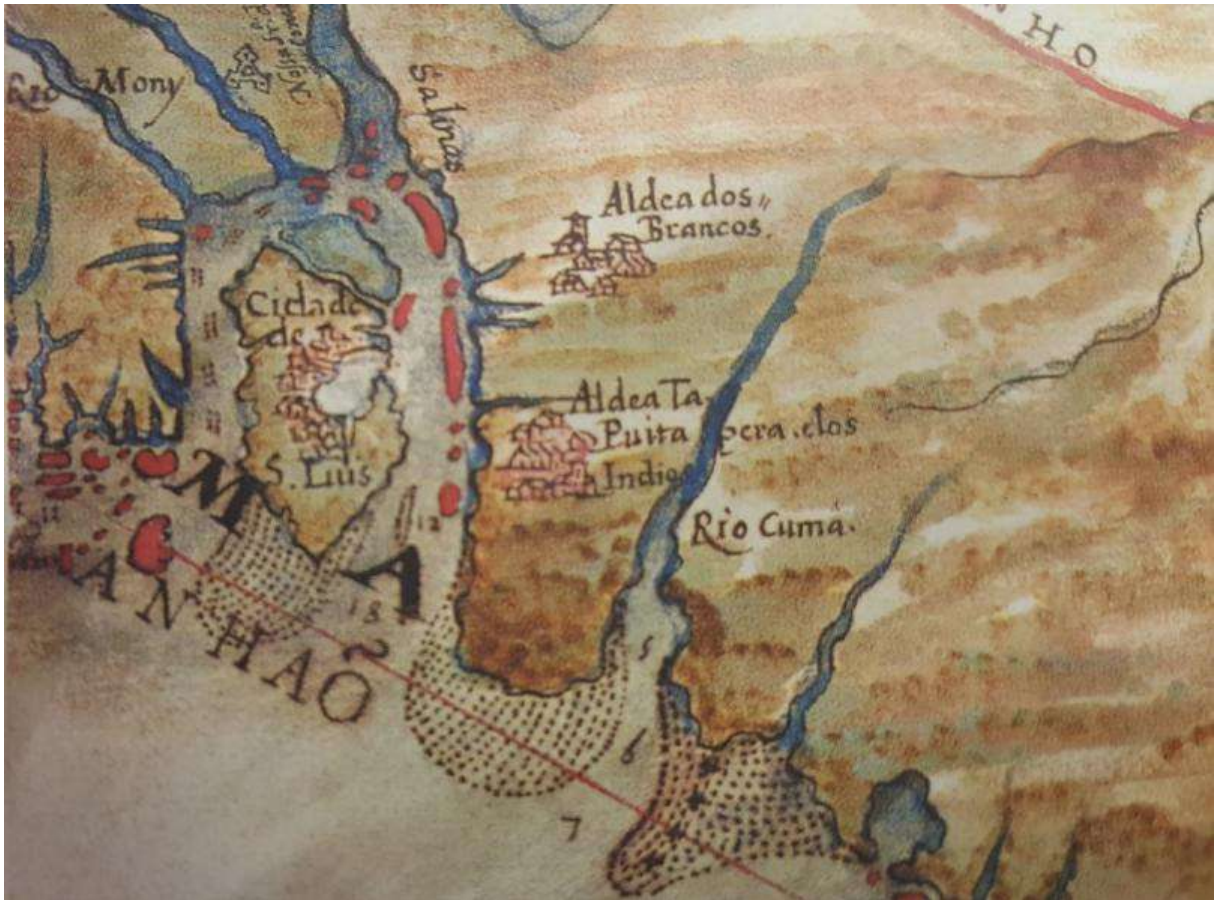 NHO
Rio Mony
Salinas
Aldea dos
Brancos.
Cidade
de
S. Luis
Aldea Ta
Puita pera . elos
Indios
Rio Cumá.
MA
ANHAÕ
11
12
13
5
6
7